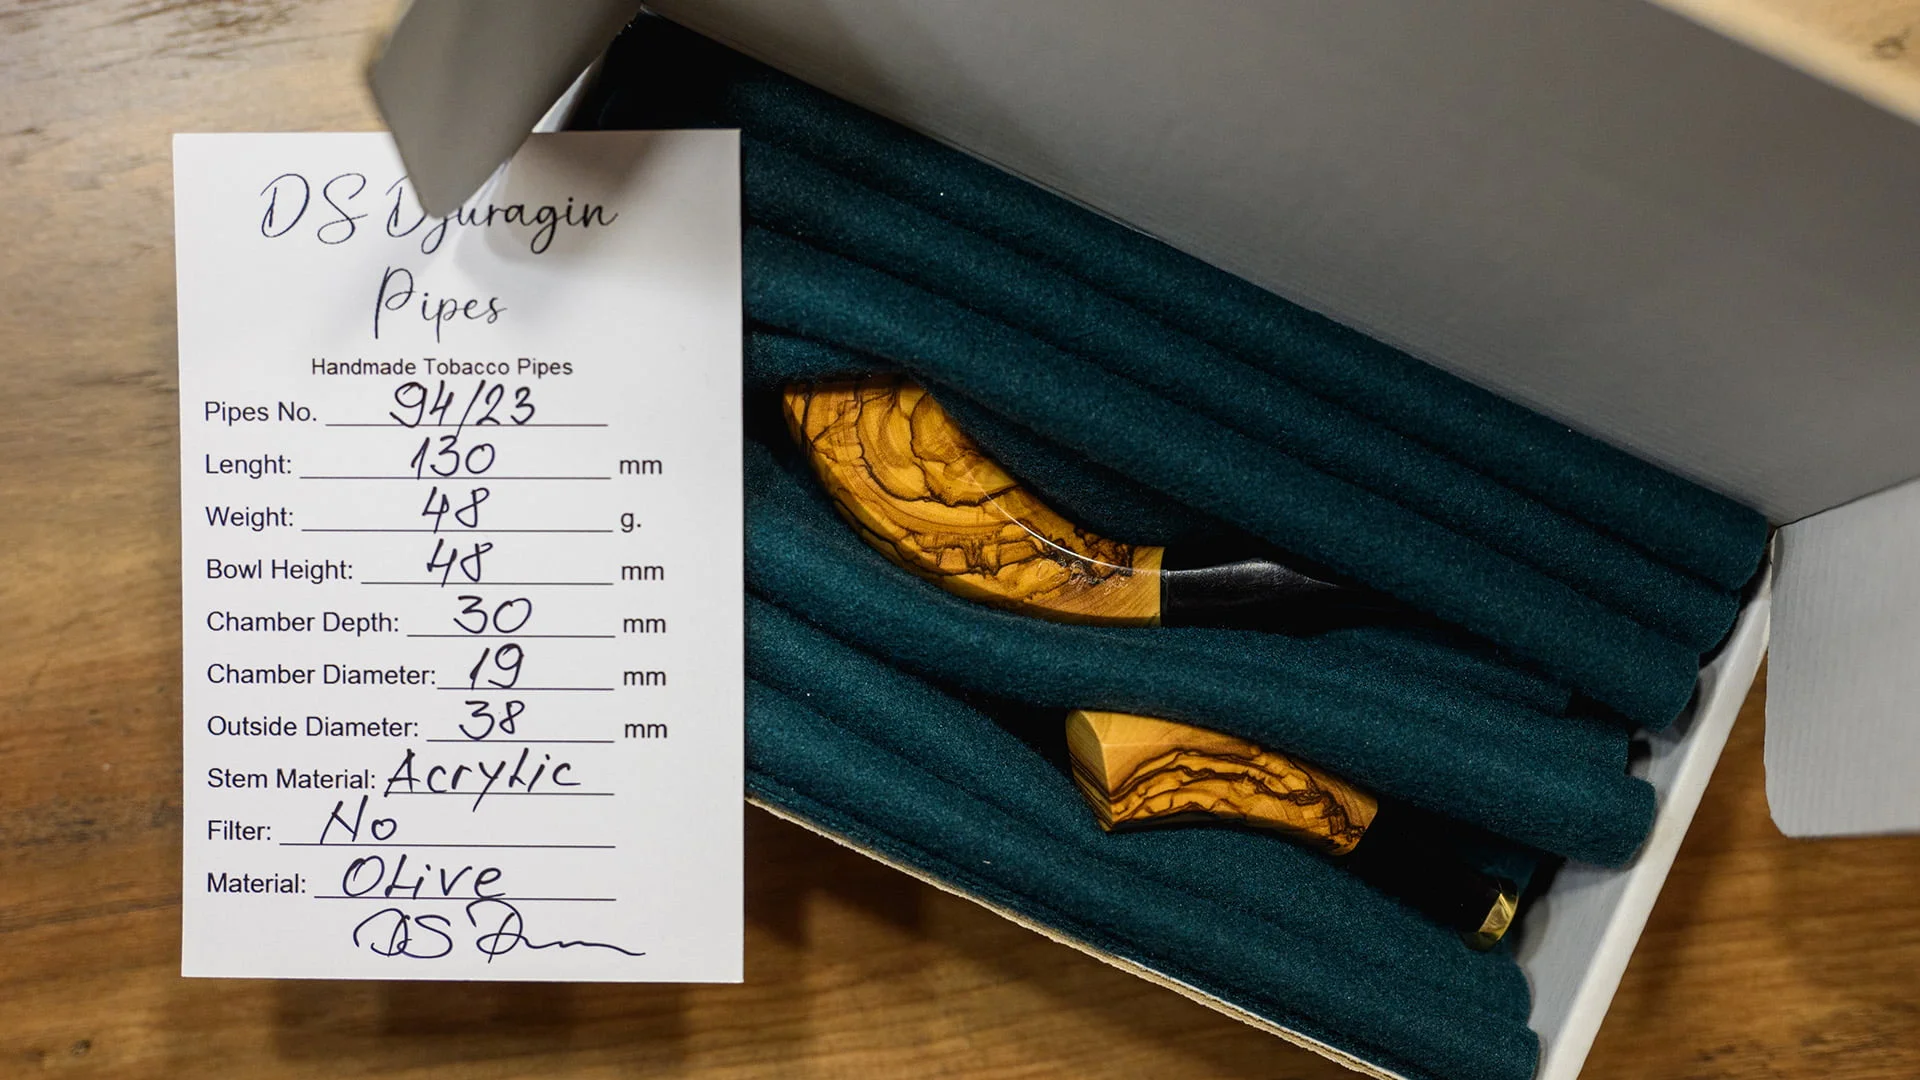 DS Djuragin
Pipes
Handmade Tobacco Pipes
Pipes No. 94/23
Lenght: 130 mm
Weight: 48 g.
Bowl Height: 48 mm
Chamber Depth: 30 mm
Chamber Diameter: 19 mm
Outside Diameter: 38 mm
Stem Material: Acrylic
Filter: No
Material: Olive
DS